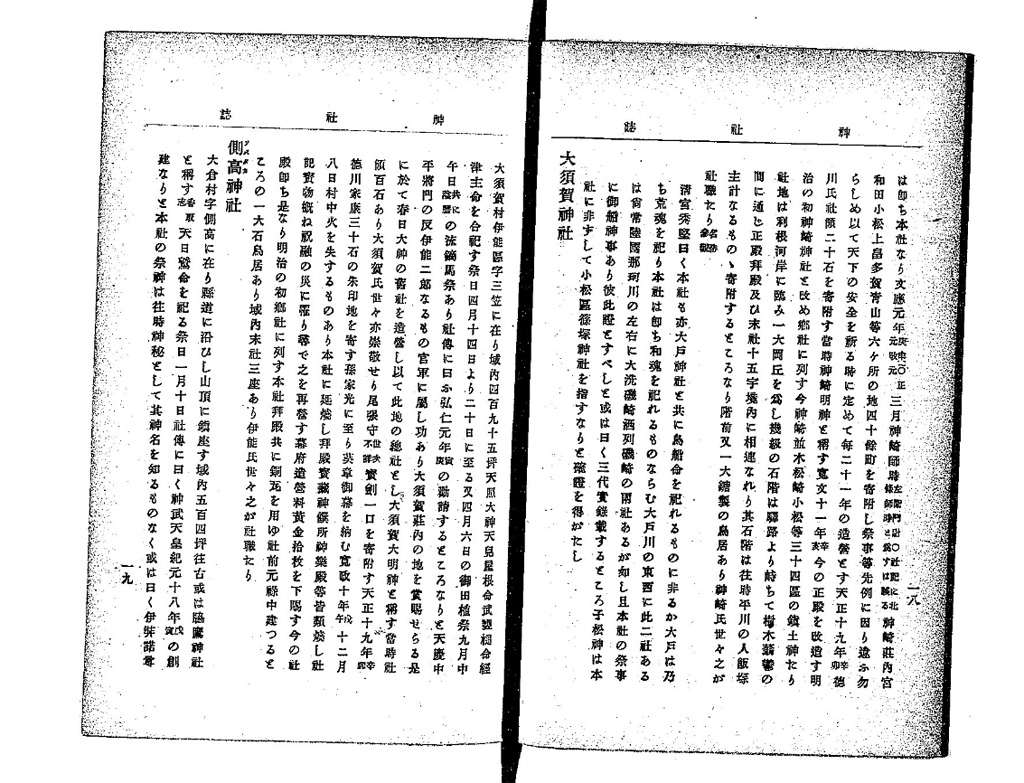 神社誌
一八
は卽ち本社なり文應元年庚申〇正元改元三月神崎師時左衞門尉〇社記に北條師時と爲すは誤る神崎莊內宮
和田小松上畠多賀靑山等六ヶ所の地四十餘町を寄附し祭事等先例に因り違ふ勿
らしめ以て天下の安全を祈る時に定めて每二十一年の造營とす天正十九年辛卯德
川氏社領二十石を寄附す當時神崎明神と稱す寬文十一年辛亥今の正殿を改造す明
治の初神崎神社と改め鄕社に列す今神崎並木松崎小松等三十四區の鎭土神たり
社地は利根河岸に臨み一大岡丘を爲し幾級の石階は驛路より峙ちて樹木蓊鬱の
間に通し正殿拜殿及ひ末社十五宇境內に相連なれり其石階は往時平川の人飯塚
主計なるものゝ寄附するところなり階前又一大鑄製の鳥居あり神崎氏世々之が
社職たり名跡金藏
淸宮秀堅曰く本社も亦大戶神社と共に鳥船命を祀れるものに非るか大戶は乃
ち荒魂を祀り本社は卽ち和魂を祀れるものならむ大戶川の東西に此二社ある
は尙常陸國那珂川の左右に大洗磯崎酒列磯崎の兩社あるが如し且本社の祭事
に御船神事あり彼此證とすべしと或は曰く三代實錄載するところ子松神は本
社に非すして小松區篠塚神社を指すなりと確證を得がたし
大須賀神社
神社誌
一九
大須賀村伊能區字三笠に在り域內四百九十五坪天照大神天兒屋根命武甕槌命經
津主命を合祀す祭日四月十四日より二十日に至る又四月六日の御田植祭九月中
午日共に陰曆の流鏑馬祭あり社傳に曰ふ弘仁元年庚寅の勸請するところなりと天慶中
平將門の反伊能二郞なるもの官軍に屬し功あり大須賀莊內の地を賞賜せらる是
に於て春日大神の舊社を造營し以て此地の總社とし大須賀大明神と稱す當時社
領百石あり大須賀氏世々亦崇敬せり尾張守世次不詳寶劍一口を寄附す天正十九年辛卯
德川家康三十石の朱印地を寄す孫家光に至り英章御幕を納む寬政十年戊午十二月
八日村中火を失するものあり本社に延燒し拜殿寶藏神饌所神樂殿等皆類燒し社
記寶物槪ね祝融の災に罹り尋で之を再營す幕府造營料黃金拾枚を下賜す今の社
殿卽ち是なり明治の初鄕社に列す本社拜殿共に銅瓦を用ゆ社前元祿中建つると
ころの一大石鳥居あり域內末社三座あり伊能氏世々之が社職たり
側高神社
大倉村字側高に在り縣道に沿ひし山頂に鎭座す域內五百四坪往古或は脇鷹神社
と稱す香取志天日鷲命を祀る祭日一月十日社傳に曰く神武天皇紀元十八年戊寅の創
建なりと本社の祭神は往時神秘として其神名を知るものなく或は曰く伊弉諾尊